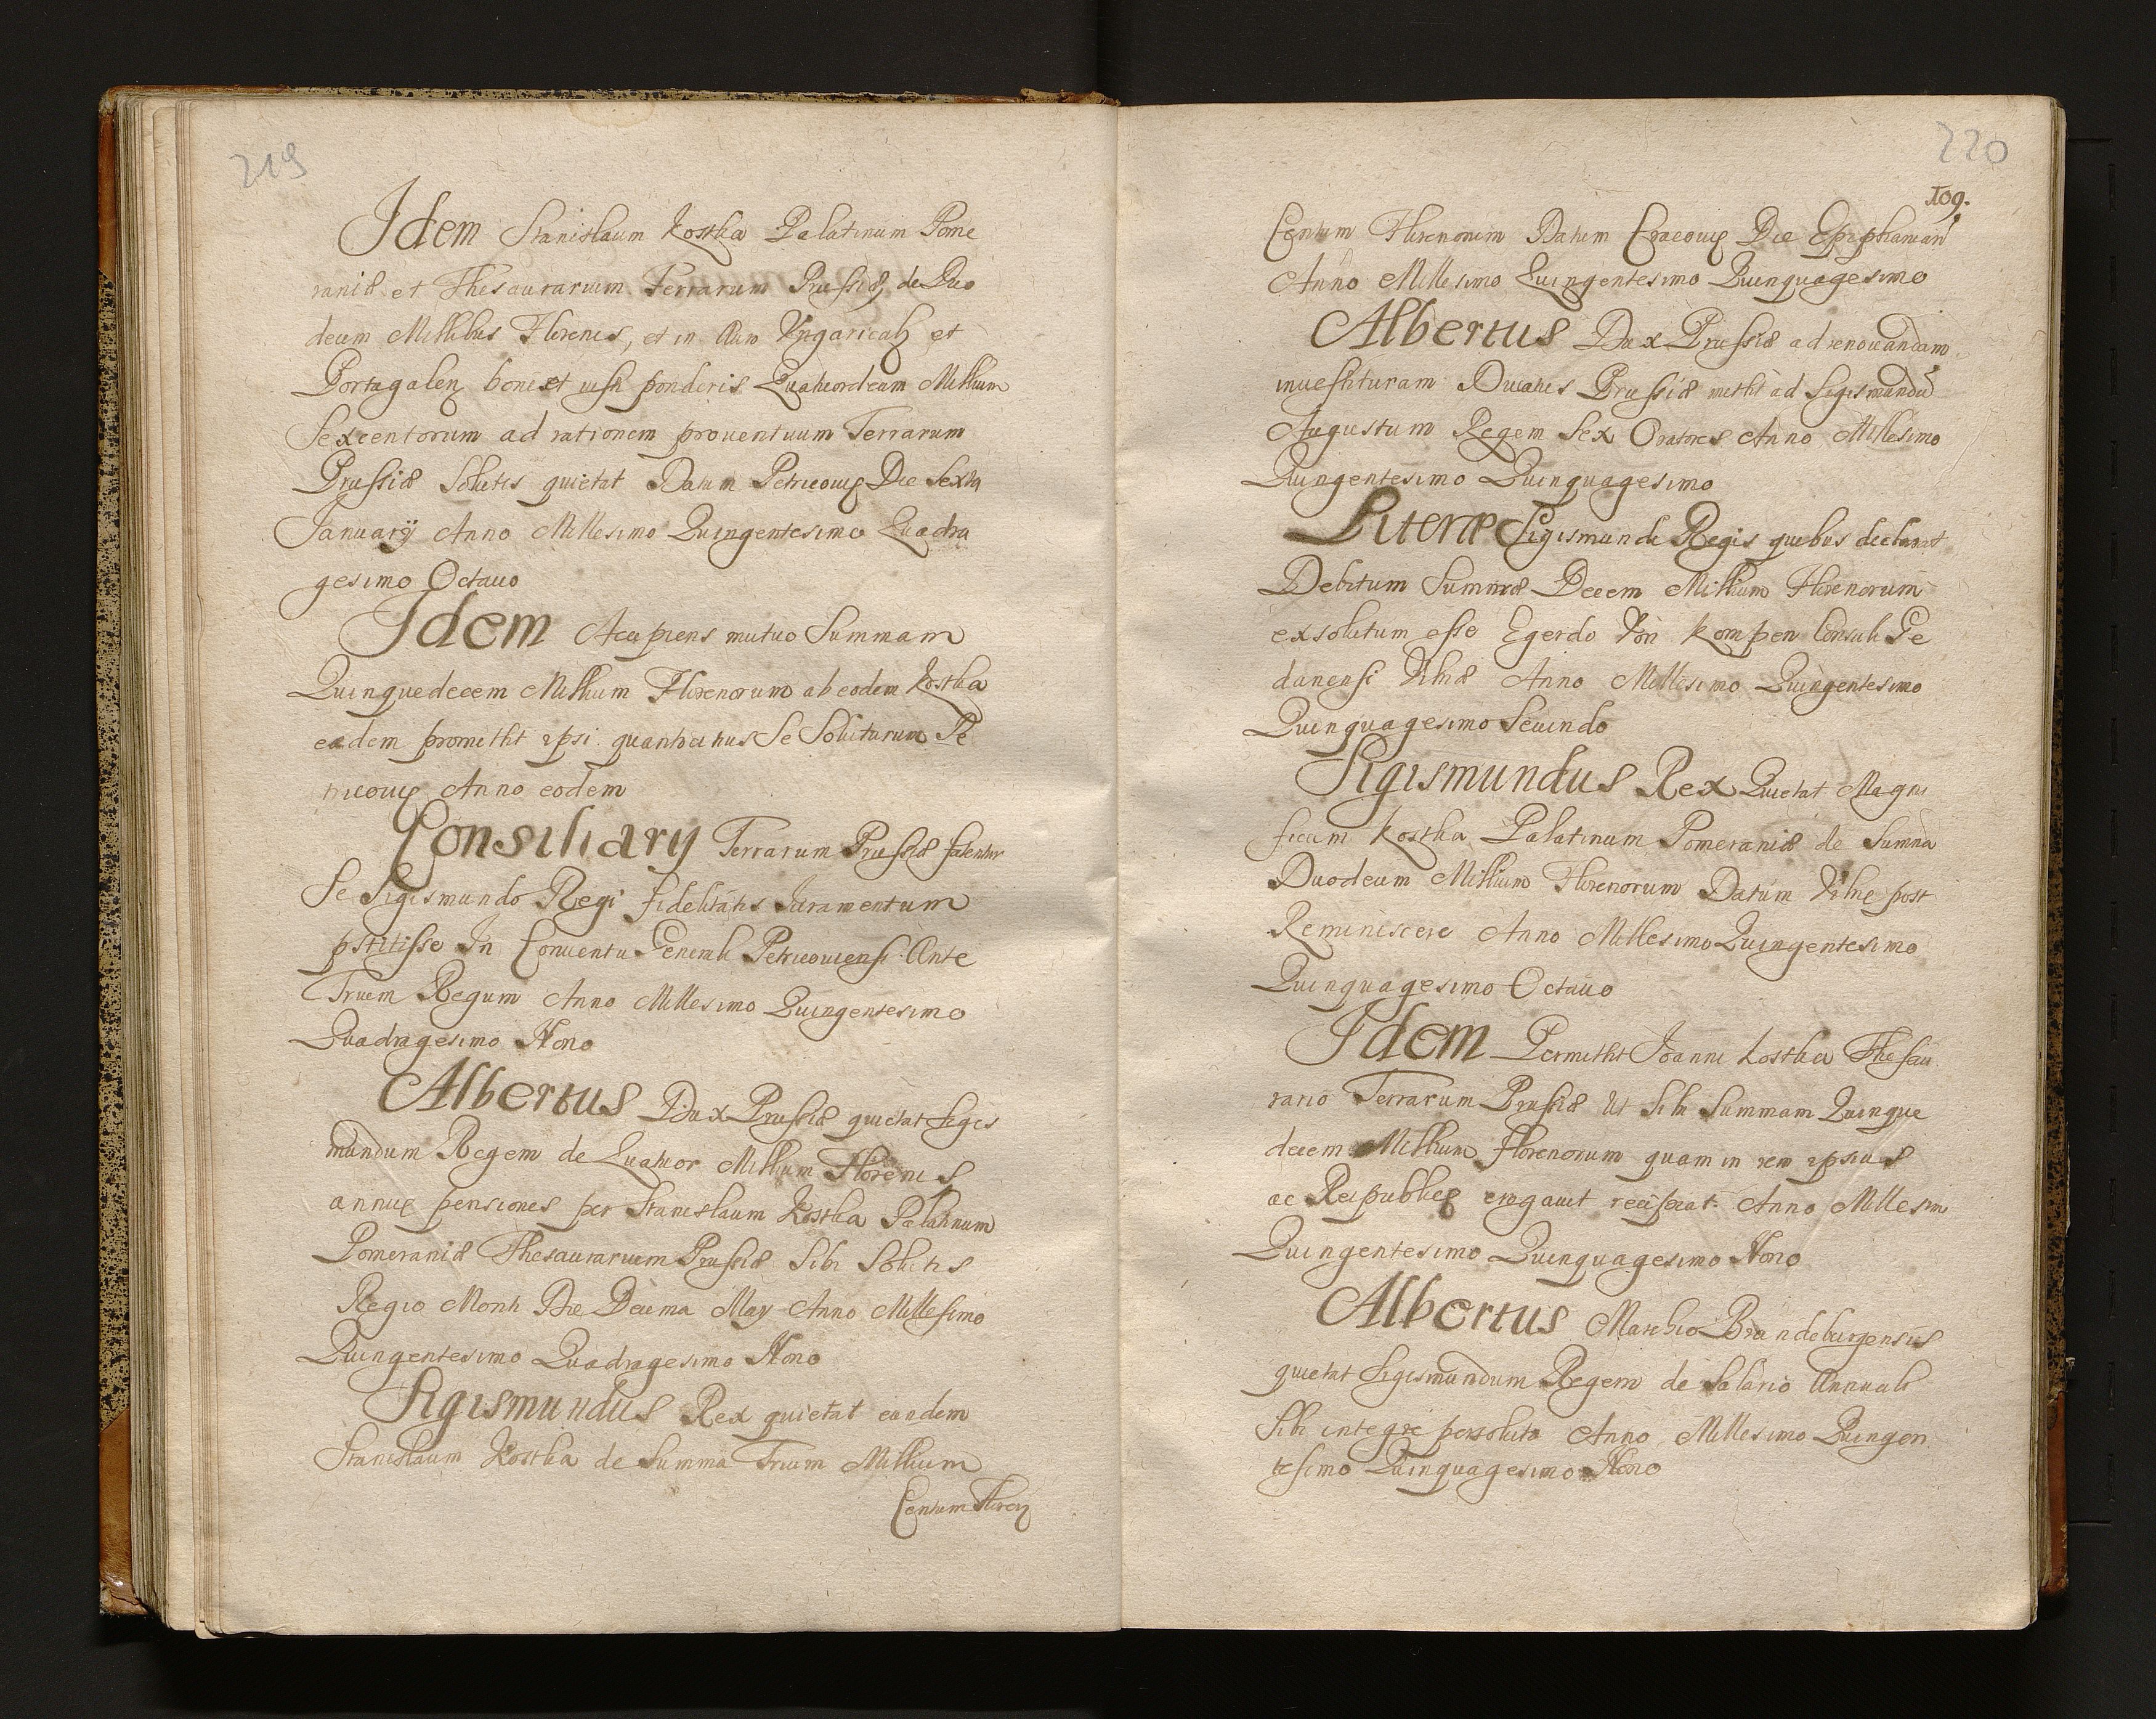 219
Idem Stanislaum Kostka Palatinum Pome
raniæ et Thesaurarium Terrarum Prussiæ, de Duo
decim Millibus Florenis, et in Auro Ungaricali et
Portugalen boni et iusti ponderis Quatuordecim Millium
Sexcentorum ad rationem prouentuum Terrarum
Prussiæ Solutis quietat Datum Petricouię Die Sexta
Januarÿ Anno Millesimo Quingentesimo Quadra
gesimo Octauo
Idem Accipiens mutuo Summam
Quinquedecem Millium Florenorum ab eodem Kostka
eadem promittit ipsi quantocius Se Soluturum Pe
tricouię Anno eodem
Consiliarij Terrarum Prussiæ fatentur
Se Sigismundo Regi fidelitatis Iuramentum
pstitisse In Conuentu Generali Petricouiensi Ante
Trium Regum Anno Millesimo Quingentesimo
Quadragesimo Nono
Albertus Dux Prussiæ quietat Sigis
mundum Regem de Quatuor Millium Florenis
annuę pensiones per Stanislaum Kostka Palatinum
Pomeraniæ Thesaurarium Prussiæ Sibi Solutis
Regio Monti Die Decima May Anno Millesimo
Quingentesimo Quadragesimo Nono
Sigismundus Rex quietat eundem
Stanislaum Kostka de Summa Trium Millium
Centum Floren
220
109.
Centum Florenorum Datum Cracouię Die Epiphaniarum
Anno Millesimo Quingentesimo Quinquagesimo
Albertus Dux Prussiæ ad renouandam
inuestituram Ducatus Prussiæ mittit ad Sigismundū
Augustum Regem Sex Oratores Anno Millesimo
Quingentesimo Quinquagesimo
Literæ Sigismundi Regis quibus declarat
Debitum Summæ Decem Millium Florenorum
exsolutum esse Egerdo Von Kompen Consuli Ge
danensi Vilnæ Anno Millesimo Quingentesimo
Quinquagesimo Secundo
Sigismundus Rex Quietat Magni
ficum Kostka Palatinum Pomeraniæ de Summa
Duodecim Millium Florenorum Datum Vilnę post
Reminiscere Anno Millesimo Quingentesimo
Quinquagesimo Octauo
Idem Permittit Joanni Kostka Thesau
rario Terrarum Prussiæ Ut Sibi Summam Quinque
decem Millium Florenorum quam in rem ipsius
ac Reipublicę erogauit recipiat. Anno Millesim
Quingentesimo Quinquagesimo Nono
Albertus Marchio Brandeburgensis
quietat Sigismundum Regem de Salario Annuali
Sibi integre persoluto Anno Millesimo Quingen
tesimo Quinquagesimo Nono